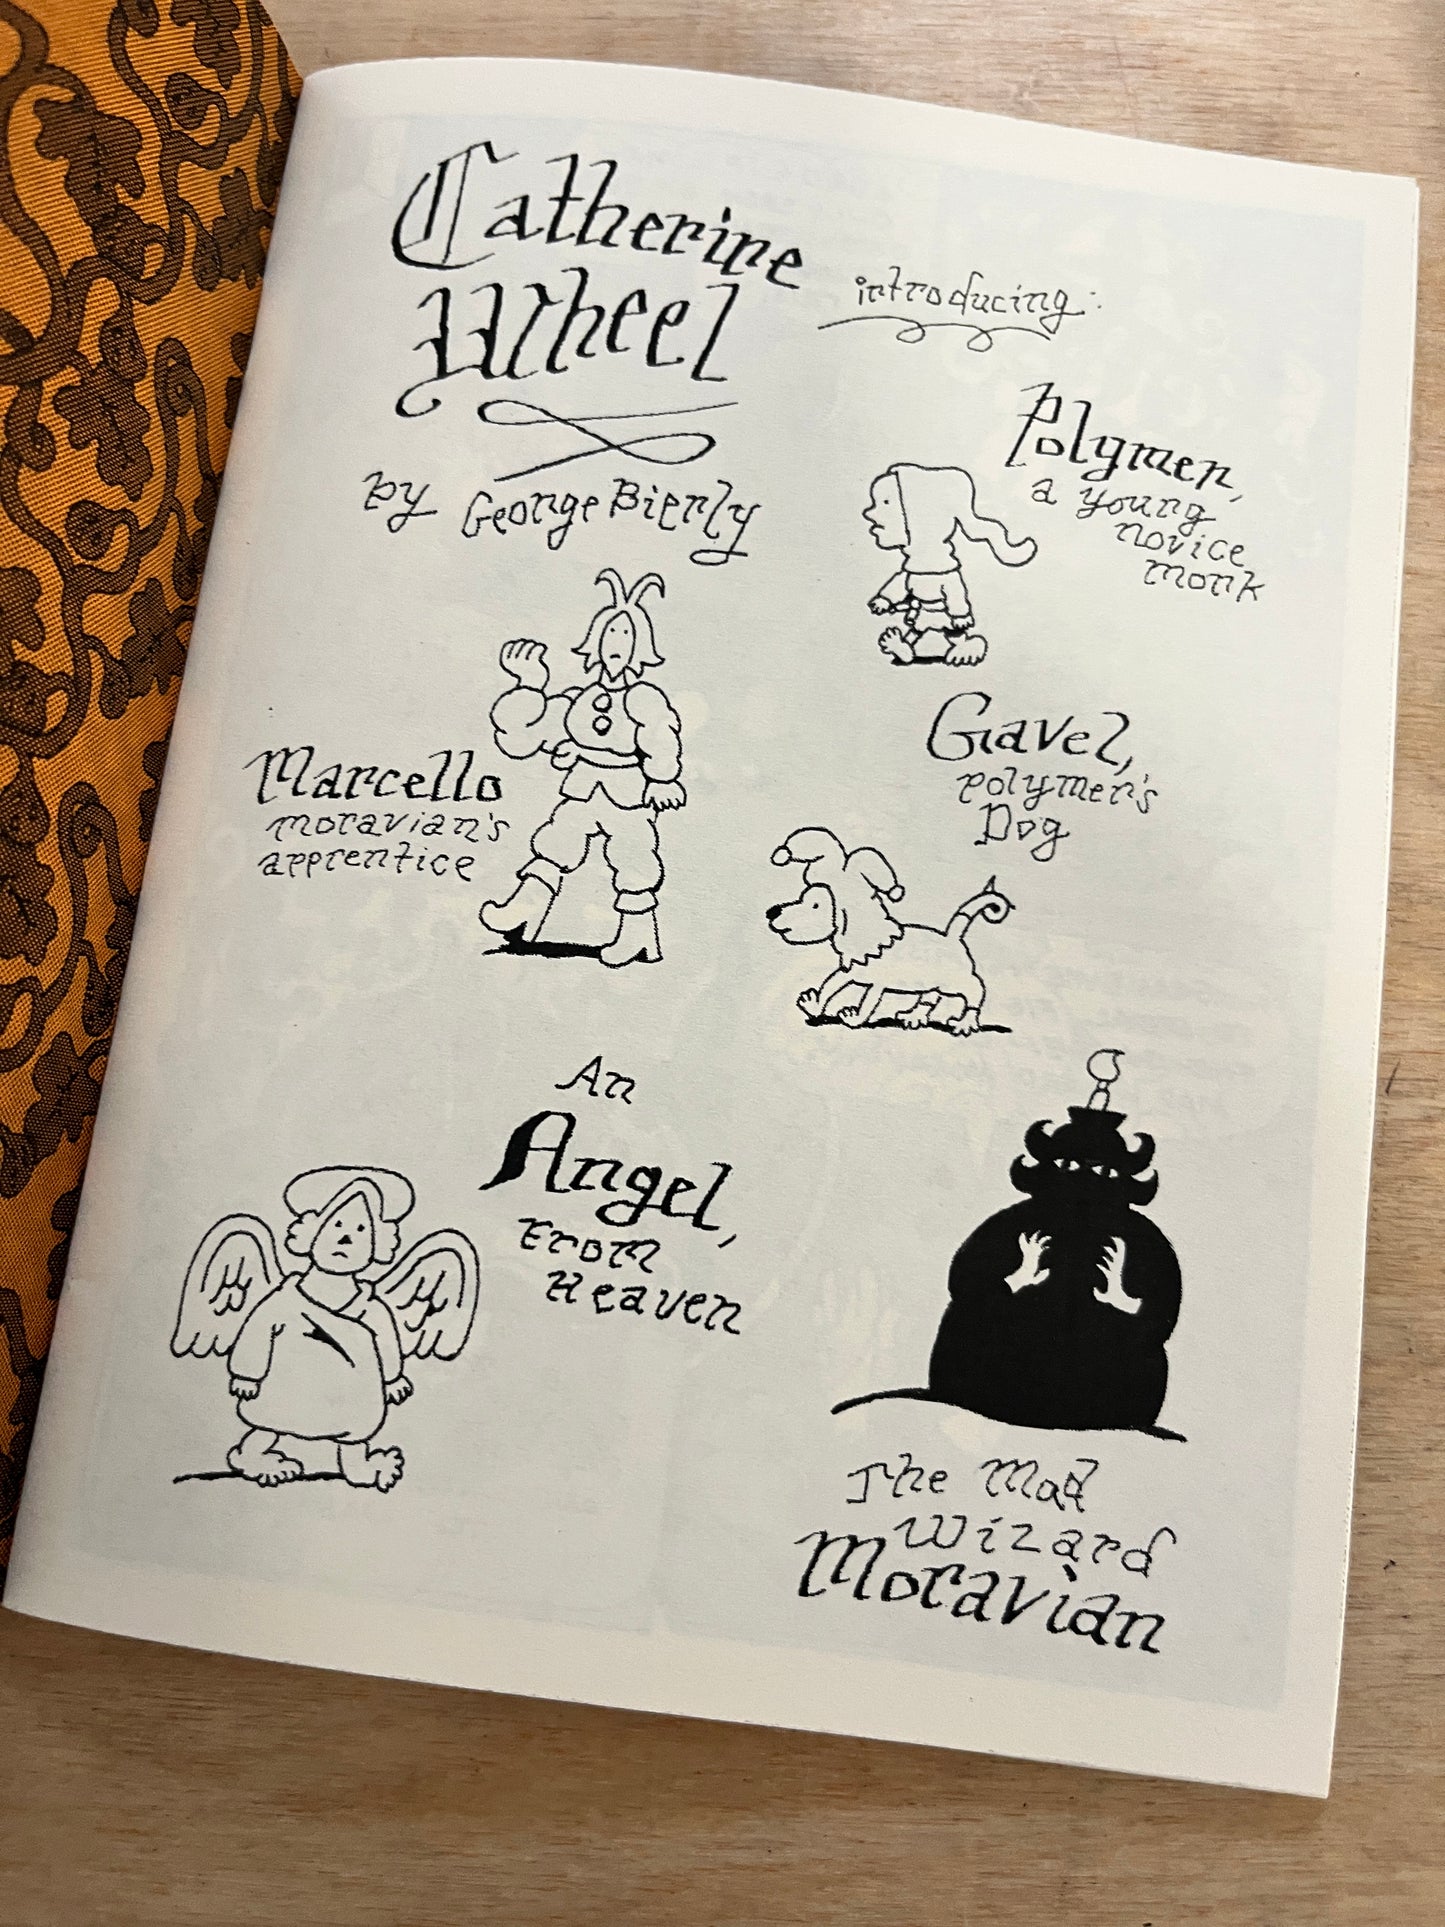 Catherine
Wheel
by George Bierly
introducing:
Polymer,
a young
novice
monk
Marcello
moravian's
apprentice
Gavel,
polymer's
Dog
An
Angel,
From
Heaven
The Mad
Wizard
Moravian